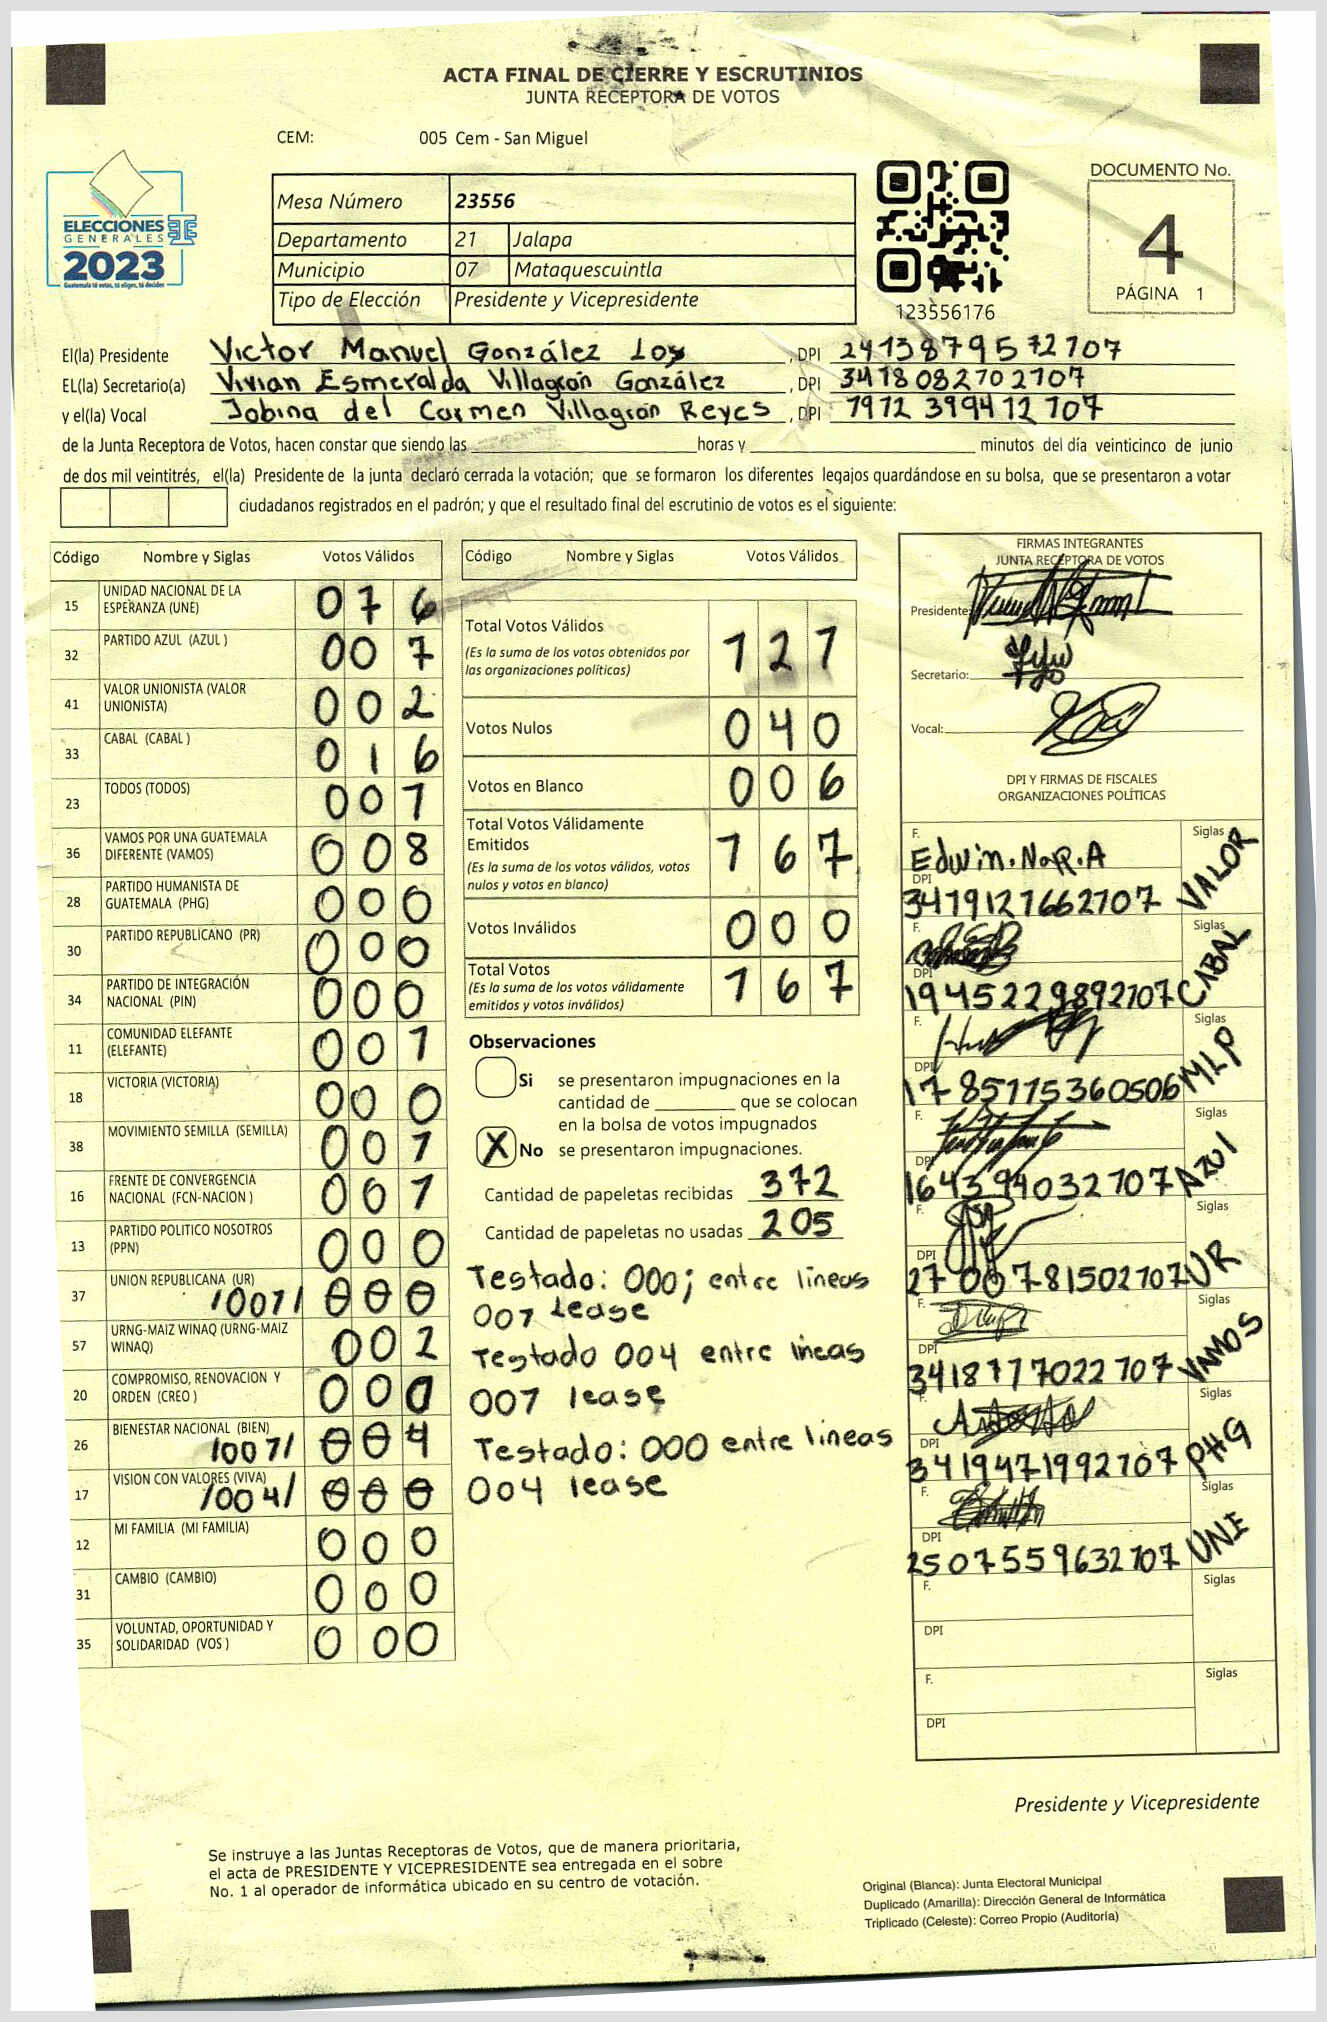 ACTA FINAL DE CIERRE Y ESCRUTINIOS
JUNTA RECEPTORA DE VOTOS
CEM: 005 Cem - San Miguel
ELECCIONES
GENERALES
2023
Guatemala tú votas, tú eliges, tú decides
Mesa Número 23556
Departamento 21 Jalapa
Municipio 07 Mataquescuintla
Tipo de Elección Presidente y Vicepresidente
123556176
DOCUMENTO No.
4
PÁGINA 1
El(la) Presidente Victor Manuel González Loy , DPI 2413879572107
EL(la) Secretario(a) Vivian Esmeralda Villagrán González , DPI 3418082702107
y el(la) Vocal Jobina del Carmen Villagrán Reyes , DPI 1912399412107
de la Junta Receptora de Votos, hacen constar que siendo las horas y minutos del día veinticinco de junio
de dos mil veintitrés, el(la) Presidente de la junta declaró cerrada la votación; que se formaron los diferentes legajos quardándose en su bolsa, que se presentaron a votar
ciudadanos registrados en el padrón; y que el resultado final del escrutinio de votos es el siguiente:
Código Nombre y Siglas Votos Válidos
15 UNIDAD NACIONAL DE LA
ESPERANZA (UNE) 076
32 PARTIDO AZUL (AZUL ) 007
41 VALOR UNIONISTA (VALOR
UNIONISTA) 002
33 CABAL (CABAL ) 016
23 TODOS (TODOS) 001
36 VAMOS POR UNA GUATEMALA
DIFERENTE (VAMOS) 008
28 PARTIDO HUMANISTA DE
GUATEMALA (PHG) 000
30 PARTIDO REPUBLICANO (PR) 000
34 PARTIDO DE INTEGRACIÓN
NACIONAL (PIN) 000
11 COMUNIDAD ELEFANTE
(ELEFANTE) 001
18 VICTORIA (VICTORIA) 000
38 MOVIMIENTO SEMILLA (SEMILLA) 001
16 FRENTE DE CONVERGENCIA
NACIONAL (FCN-NACION ) 001
13 PARTIDO POLITICO NOSOTROS
(PPN) 000
37 UNION REPUBLICANA (UR)
/001/ 000
57 URNG-MAIZ WINAQ (URNG-MAIZ
WINAQ) 002
20 COMPROMISO, RENOVACION Y
ORDEN (CREO ) 000
26 BIENESTAR NACIONAL (BIEN)
/001/ 004
17 VISION CON VALORES (VIVA)
/004/ 000
12 MI FAMILIA (MI FAMILIA) 000
31 CAMBIO (CAMBIO) 000
35 VOLUNTAD, OPORTUNIDAD Y
SOLIDARIDAD (VOS ) 000
Código Nombre y Siglas Votos Válidos
Total Votos Válidos 121
(Es la suma de los votos obtenidos por
las organizaciones políticas)
Votos Nulos 040
Votos en Blanco 006
Total Votos Válidamente
Emitidos 167
(Es la suma de los votos válidos, votos
nulos y votos en blanco)
Votos Inválidos 000
Total Votos 167
(Es la suma de los votos válidamente
emitidos y votos inválidos)
Observaciones
Si se presentaron impugnaciones en la
cantidad de que se colocan
en la bolsa de votos impugnados
X No se presentaron impugnaciones.
Cantidad de papeletas recibidas 372
Cantidad de papeletas no usadas 205
Testado: 000; entre lineas
001 Lease
Testado 004 entre lineas
001 lease
Testado: 000 entre lineas
004 lease
FIRMAS INTEGRANTES
JUNTA RECEPTORA DE VOTOS
Presidente:
Secretario:
Vocal:
DPI Y FIRMAS DE FISCALES
ORGANIZACIONES POLÍTICAS
F. Edwin.N.R.A Siglas VALOR
DPI 3419121662107
F. Siglas CABAL
DPI 1945229892107
F. Siglas MLP
DPI 1785115360506
F. Siglas AZUL
DPI 164394032107
F. Siglas UR
DPI 2700781502107
F. Siglas VAMOS
DPI 3418117022107
F. Siglas PHG
DPI 3419471992107
F. Siglas UNE
DPI 2507559632107
F. Siglas
DPI
F. Siglas
DPI
Presidente y Vicepresidente
Se instruye a las Juntas Receptoras de Votos, que de manera prioritaria,
el acta de PRESIDENTE Y VICEPRESIDENTE sea entregada en el sobre
No. 1 al operador de informática ubicado en su centro de votación.
Original (Blanca): Junta Electoral Municipal
Duplicado (Amarilla): Dirección General de Informática
Triplicado (Celeste): Correo Propio (Auditoría)